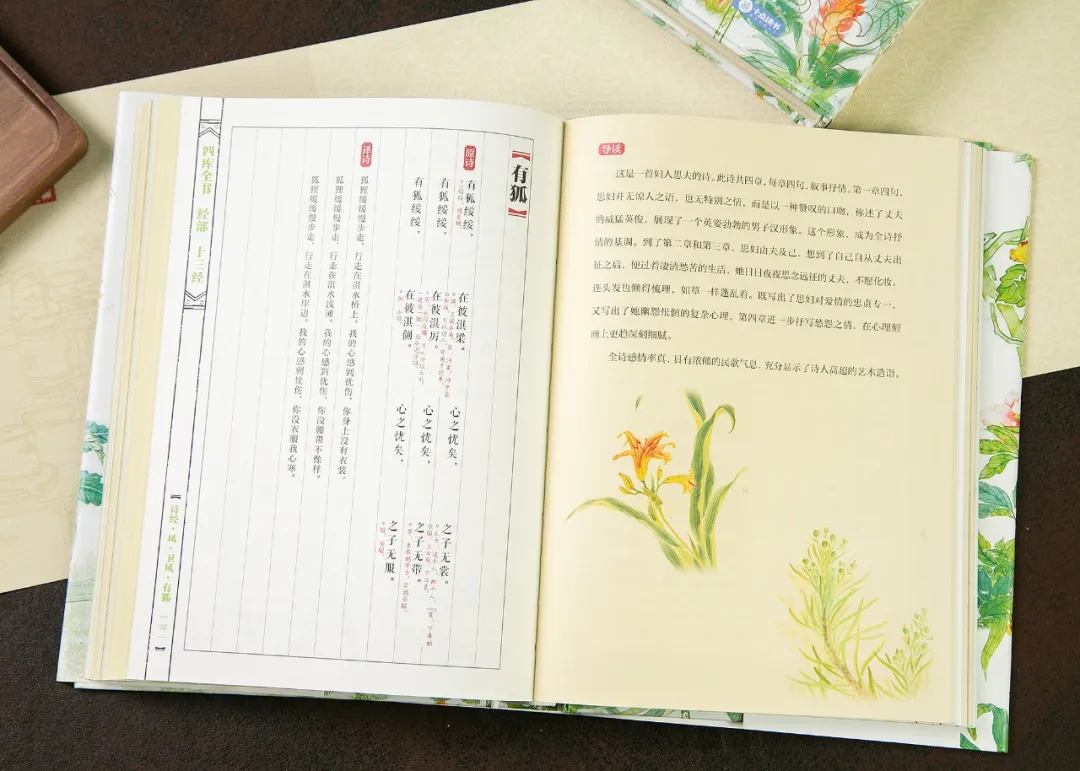 十点读书
四库全书 经部 十三经
诗经·风·卫风·有狐
有狐
原诗
有狐绥绥，在彼淇梁。心之忧矣，之子无裳。
有狐绥绥，在彼淇厉。心之忧矣，之子无带。
有狐绥绥，在彼淇侧。心之忧矣，之子无服。
译诗
狐狸缓缓慢步走，行走在淇水桥上。我的心感到忧伤，你身上没有衣裳。
狐狸缓缓慢步走，行走在淇水浅滩。我的心感到忧伤，你没腰带不像样。
狐狸缓缓慢步走，行走在淇水岸边。我的心感到忧伤，你没衣服我心寒。
导读
这是一首妇人思夫的诗。此诗共四章，每章四句，叙事抒情。第一章四句，
思妇并无惊人之语，也无特别之情，而是以一种赞叹的口吻，称述了丈夫
的威猛英俊，展现了一个英姿勃勃的男子汉形象。这个形象，成为全诗抒
情的基调。到了第二章和第三章，思妇由夫及己，想到了自己自从丈夫出
征之后，便过着凄清愁苦的生活，她日日夜夜思念远征的丈夫，不愿化妆，
连头发也懒得梳理，如草一样蓬乱着。既写出了思妇对爱情的忠贞专一，
又写出了她幽怨怅惘的复杂心理。第四章进一步抒写愁怨之情，在心理刻
画上更趋深刻细腻。
全诗感情率真，具有浓郁的民歌气息，充分显示了诗人高超的艺术造诣。